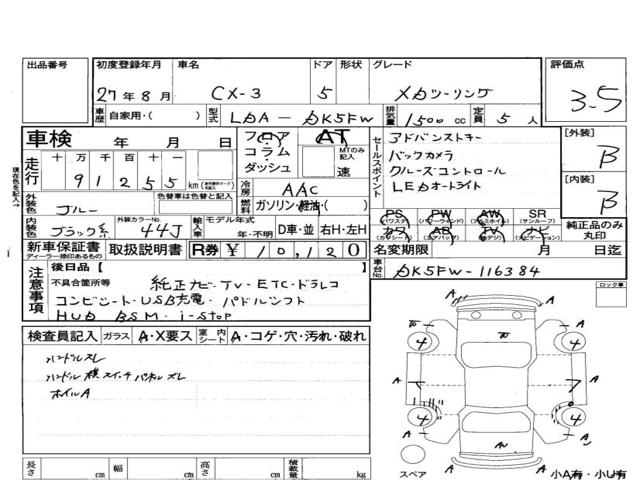 出品番号 初度登録年月 車名 ドア 形状 グレード 評価点
27年8月 CX-3 5 XDツーリング 3.5
車歴 自家用・( ) 型式 LDA-DK5FW 排気量 1500 cc 定員 5 人
車検 年 月 日 フロア コラム ダッシュ AT MTのみ記入 速
セールスポイント アドバンストキー
バックカメラ
クルーズコントロール
LEDオートライト
[外装] B
[内装] B
現在色を記入→
走行 十 万 千 百 十 一
9 1 2 5 5 km
冷房 AAC
外装色 ブルー 色替車は色替と記入 燃料 ガソリン・軽油・( )
内装色 ブラック系 外装カラーNo. 44J 輸入車 モデル年式 年・不明 D車・並 右H・左H
PS (パワステ) PW (パワーウィンド) AW (アルミホイール) SR (サンルーフ)
カワ (カワシート) AB (エアバック) TV (テレビ) ナビ (ナビゲーション)
純正品のみ丸印
新車保証書 ディーラー捺印あるもの 取扱説明書 R券 ¥ 10,120 名変期限 月 日迄
注意事項 後日品【
不具合箇所等 純正ナビ・TV・ETC・ドラレコ
コンビシート・USB充電・パドルシフト
HUD BSM・i-stop
車台No. DK5FW-116384
ロック車
検査員記入 ガラス A・X要ス 室内シート A・コゲ・穴・汚れ・破れ
ハンドルスレ
ハンドル横スイッチパネルスレ
ホイルA
A A
4 4
A A
A A
4 4
A A
スペア 小A有・小U有
長さ cm 幅 cm 高さ cm 積載量 kg